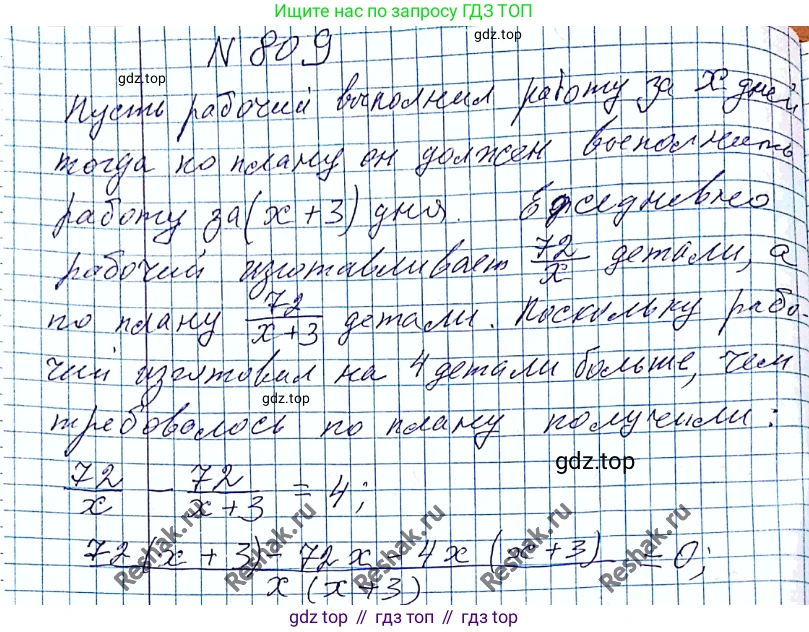 Ищите нас по запросу ГДЗ ТОП
N 809
gdz.top
Пусть рабочий выполнил работу за x дней,
тогда по плану он должен выполнить
работу за (x+3) дня. Ежедневно
рабочий изготавливает 72/x детали, а
по плану 72/(x+3) детали. Поскольку рабо-
чий изготовил на 4 детали больше, чем
gdz.top
требовалось по плану получили:
gdz.top
72/x - 72/(x+3) = 4;
(72(x+3) - 72x - 4x(x+3))/(x(x+3)) = 0;
Reshak.ru Reshak.ru Reshak.ru Reshak.ru
gdz.top // gdz.top // gdz.top // gdz.top